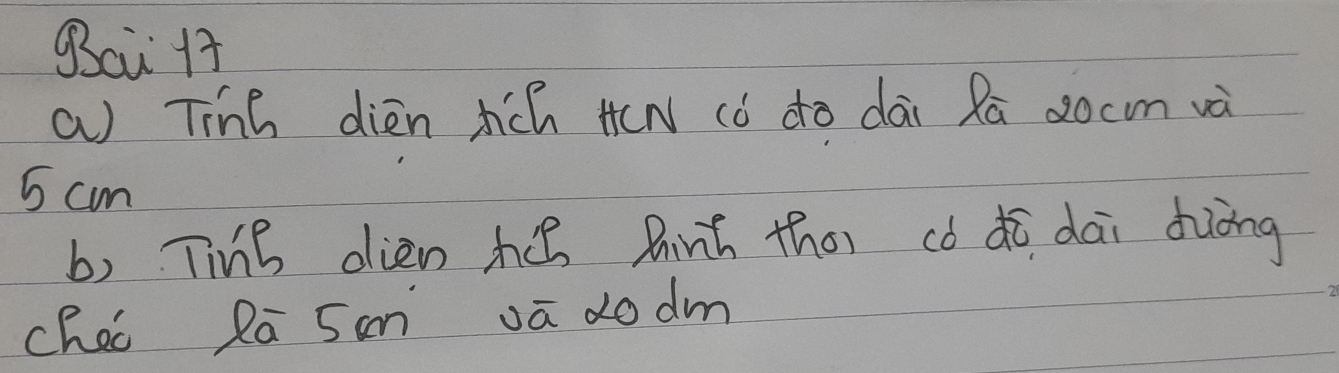 Bài 17
a) Tính diện tích HCN có độ dài là 20cm và
5 cm
b) Tính diện tích hình thoi có độ dài đường
chéo là 5cm và 20 dm